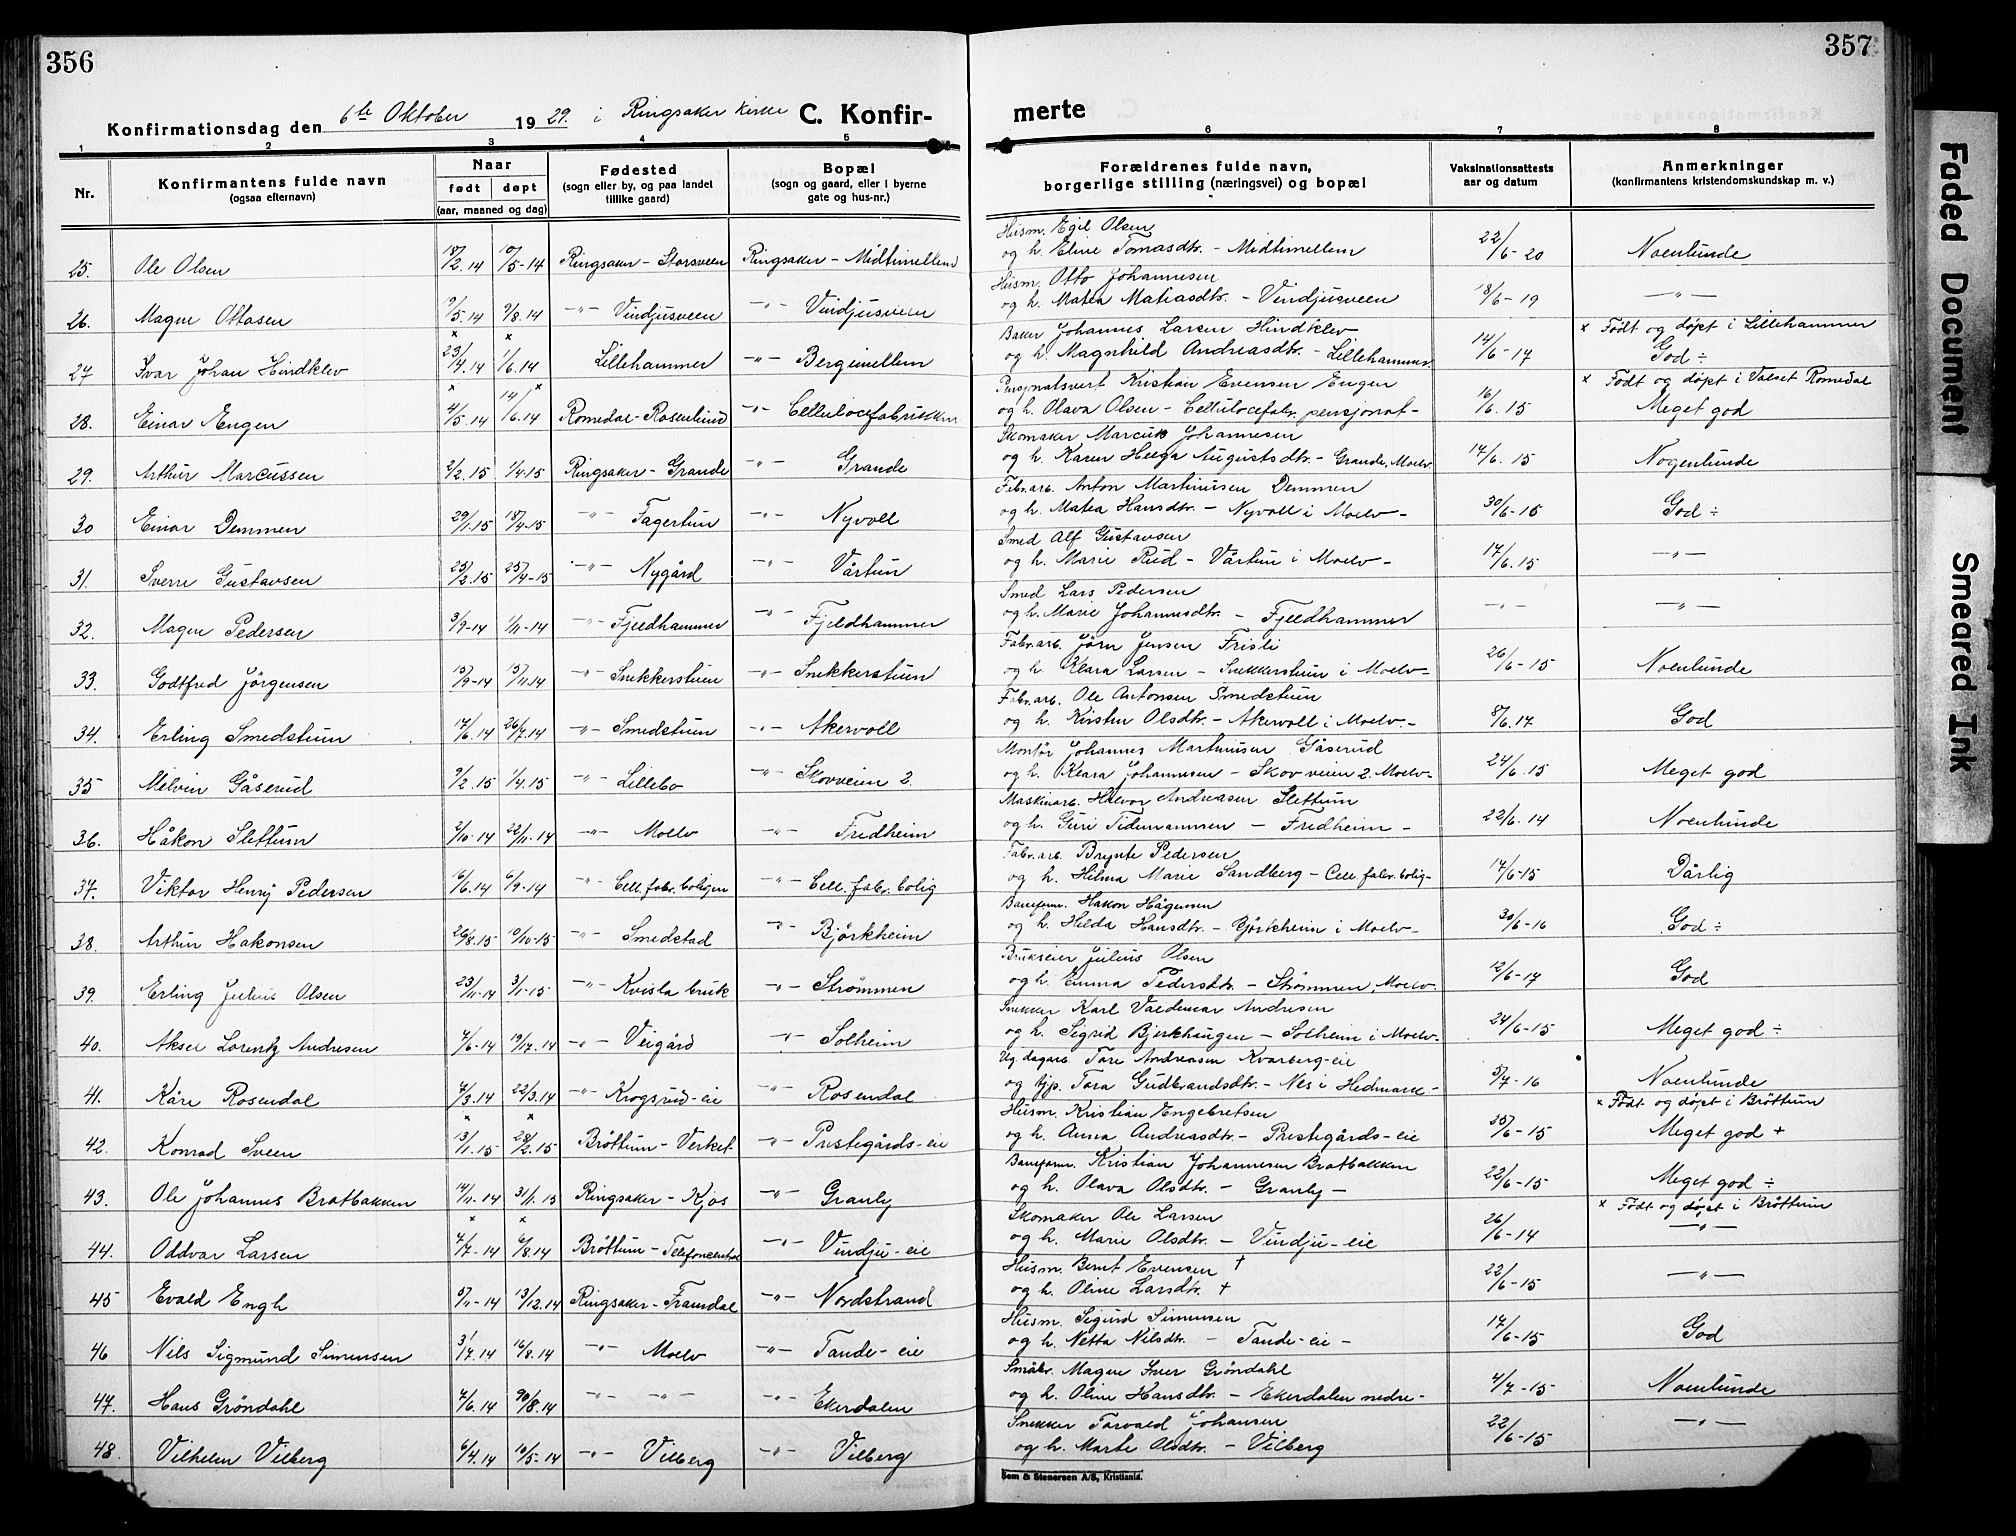 356
357
Konfirmationsdag den 6te Oktober 1929. i Ringsaker kirke C. Konfir-
merte
1 2 3 4 5 6 7 8
Nr.
Konfirmantens fulde navn
(ogsaa efternavn)
Naar
født døpt
(aar, maaned og dag)
Fødested
(sogn eller by, og paa landet
tillike gaard)
Bopæl
(sogn og gaard, eller i byerne
gate og hus-nr.)
Forældrenes fulde navn,
borgerlige stilling (næringsvei) og bopæl
Vaksinationsattests
aar og datum
Anmerkninger
(konfirmantens kristendomskundskap m. v.)
Husm. Egil Olsen
25. Ole Olsen 18/2.14 10/5-14 Ringsaker - Storsveen Ringsaker - Midtimellem og h. Eline Tomasdtr. - Midtimellem 22/6-20 Noenlunde
Husm. Otto Johannesen
26. Magne Ottosen 9/5.14 9/8.14 -"- Vindjusveen -"- Vindjusveen og h. Matea Matiasdtr. - Vindjusveen 18/6-19 -"-
Baker Johannes Larsen Hindklev × Født og døpt i Lillehammer
27 Ivar Johan Hindklev 23/4.14 1/6.14 Lillehammer -"- Bergimellem og h. Magnhild Andreasdtr. - Lillehammer. 14/6-17 God ÷
Pensjonatsvert Kristian Evensen Engen × Født og døpt i Valset Romedal
28. Einar Engen 4/5.14 14/6.14 Romedal - Rosenlund -"- Cellulocefabrikken og h. Olava Olsen - Cellulocefabr. pensjonat- 16/6.15 Meget god
Skomaker Marcus Johannesen
29. Arthur Marcussen 2/2.15 1/4.15 Ringsaker - Grande -"- Grande og h. Karen Helga Augustsdtr. - Grande, Moelv. 17/6.15 Nogenlunde
Fabr.arb. Anton Martinusen Demmen
30 Einar Demmen 29/1.15 18/4-15 -"- Fagertun -"- Nyvoll og h. Matea Hansdtr. - Nyvoll i Moelv- 30/6-16 God ÷
Smed Alf Gustavsen
31. Sverre Gustavsen 23/2.15 25/4-15 -"- Nygård -"- Vårtun og h. Marie Rud - Vårtun i Moelv- 17/6.15 -"-
Smed Lars Pedersen
32. Magne Pedersen 3/9-14 1/11-14 -"- Fjeldhammer -"- Fjeldhammer og h. Marie Johannesdtr. - Fjeldhammer -"- -"-
Fabr.arb. Jørn Jensen Frisli
33. Godtfred Jörgensen 15/9-14 15/11.14 -"- Snekkerstuen -"- Snekkerstuen og h. Klara Larsen - Snekkerstuen i Moelv- 26/6-15 Noenlunde
Fabr.arb. Ole Antonsen Smedstuen
34. Erling Smedstuen 17/6.14 26/7.14 -"- Smedstuen -"- Akervoll og h. Kirsten Olsdtr. - Akervoll i Moelv.- 8/6.17 God
Montør Johannes Martinusen Gåserud
35 Melvin Gåserud 9/2.15 1/4.15 -"- Lillebo -"- Skovveien 2. og h. Klara Johannesen - Skovveien 2. Moelv- 24/6.15 Meget god
Maskinarb. Halvor Andreasen Slettum
36. Håkon Slettum 2/10-14 22/11-14 -"- Moelv -"- Fredheim og h. Guri Tidemannsen - Fredheim- 22/6.14 Noenlunde
Fabr.arb. Brynte Pedersen
37. Viktor Henry Pedersen 16/6.14 6/9-14 -"- Cell.fabr.boligen -"- Cell.fabr.bolig og h. Hilma Marie Sandberg - Cell fabr.bolig- 17/6-15 Dårlig
Baneform. Hakon Hågensen
38. Arthur Hakonsen 26/8.15 10/10-15 -"- Smedstad -"- Bjørkheim og h. Hilda Hansdtr. - Gjørkheim i Moelv- 30/6-16 God ÷
Brukseier Julius Olsen
39. Erling Julius Olsen 23/11-14 3/1-15 -"- Kvisla bruk -"- Strømmen og h. Emma Pedersdtr. - Strømmen, Moelv. 12/6-17 God
Snekker Karl Valdemar Andresen
40. Aksel Lorentz Andresen 7/6-14 19/7.14 -"- Veigård -"- Solheim og h. Sigrid Bjerkhaugen - Solheim i Moelv- 24/6-15 Meget god ÷
Ug. dagarb. Tore Andreasen Kvarberg-eie
41. Kåre Rosendal 7/3.14 22/3.14 -"- Krogsrud-eie -"- Rosendal og pp. Tora Gudbrandsdtr. - Nes i Hedmark- 5/7-16 Noenlunde
Husm. Kristian Engebretsen × Født og døpt i Brøttum
42. Konrad Sveen 13/1.15 28/2.15 Brøttum - Verket -"- Prestegårds-eie og h. Anna Andreasdtr. - Prestegårds-eie 25/6-15 Meget god +
Baneform. Kristian Johannesen Bratbakken
43. Ole Johannes Bratbakken 14/11.14 31/1.15 Ringsaker - Kjos -"- Granly og h. Olava Olsdtr. - Granly- 22/6-15 Meget god ÷
Skomaker Ole Larsen × Født og døpt i Brøttum
44. Oddvar Larsen 4/7-14 6/8.14 Brøttum - Telefoncentral -"- Vindju-eie og h. Marie Olsdtr. - Vindju-eie 26/6-14 -"-
Husm. Bernt Evensen †
45 Evald Engh 5/11-14 13/12.14 Ringsaker - Framdal -"- Nordstrand og h. Oline Larsdtr. † 22/6-15 -"-
Husm. Sigurd Simensen
46 Nils Sigmund Simensen 31/7.14 16/8.14 -"- Moelv -"- Tande-eie og h. Netta Nilsdtr. - Tande-eie- 17/6-15 God
Småbr. Magne Iver Grøndahl
47. Hans Grøndahl 7/6.14 30/8.14 -"- -"- -"- Ekerdalen og h. Oline Hansdtr. - Ekerdalen nedre- 4/7-15 Noenlunde
Snekker Torvald Johansen
48. Vilhelm Vilberg 6/4.14 10/5-14 -"- Vilberg -"- Vilberg og h. Marte Olsdtr. - Vilberg 22/6-15 -"-
Sem & Stenersen A/S, Kristiania.
Faded Document
Smeared Ink